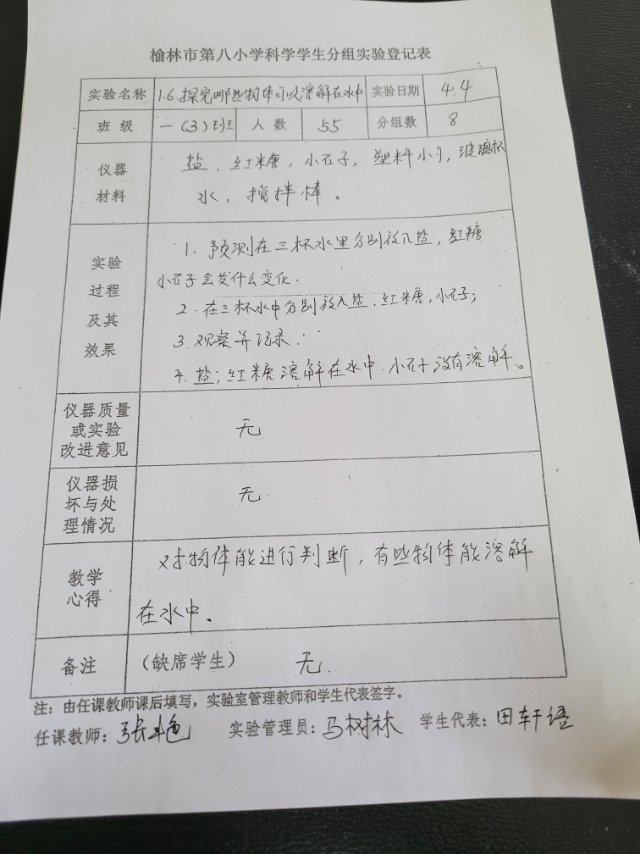 榆林市第八小学科学学生分组实验登记表
实验名称 1.6.探究哪些物体可以溶解在水中 实验日期 4.4
班级 一(3)班 人数 55 分组数 8
仪器材料 盐、红糖,小石子,塑料小勺,玻璃杯
水,搅拌棒。
实验过程及其效果
1. 预测在三杯水里分别放入盐,红糖
小石子会发什么变化.
2. 在三杯水中分别放入盐,红糖,小石子;
3. 观察并记录.
4. 盐;红糖溶解在水中.小石子没有溶解。
仪器质量或实验改进意见 无
仪器损坏与处理情况 无
教学心得 对物体能进行判断,有些物体能溶解
在水中。
备注 (缺席学生) 无.
注:由任课教师课后填写,实验室管理教师和学生代表签字。
任课教师:张艳 实验管理员:马树林 学生代表:田轩